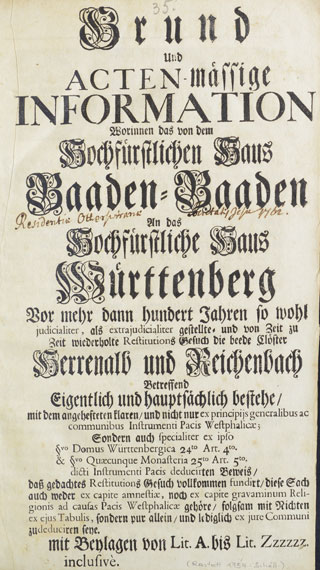 35.
Grund
Und
ACTEN-mässige
INFORMATION
Worinnen das von dem
Hochfürstlichen Haus
Baaden-Baaden
Residentiæ Ottersviranæ Societatis Jesu 1762.
An das
Hochfürstliche Haus
Württenberg
Vor mehr dann hundert Jahren so wohl
judicialiter, als extrajudicialiter gestellte- und von Zeit zu
Zeit wiederholte Restitutions Gesuch die beede Clöster
Herrenalb und Reichenbach
Betreffend
Eigentlich und hauptsächlich bestehe/
mit dem angehefteten klaren/ und nicht nur ex principijs generalibus ac
communibus Instrumenti Pacis Westphalicæ;
Sondern auch specialiter ex ipso
§vo Domus Württenbergica 24to Art. 4to.
& §vo Quæcunque Monasteria 25to Art. 5to.
dicti Instrumenti Pacis deducirten Beweis/
daß gedachtes Restitutions Gesuch vollkommen fundirt/ diese Sach
auch weder ex capite amnestiæ, noch ex capite gravaminum Religionis
ad causas Pacis Westphalicæ gehöre/ folgsam mit Nichten
ex ejus Tabulis, sondern pur allein/ und lediglich ex jure Communi
zu deduciren seye.
mit Beylagen von Lit. A. bis Lit. Zzzzzz.
inclusive.